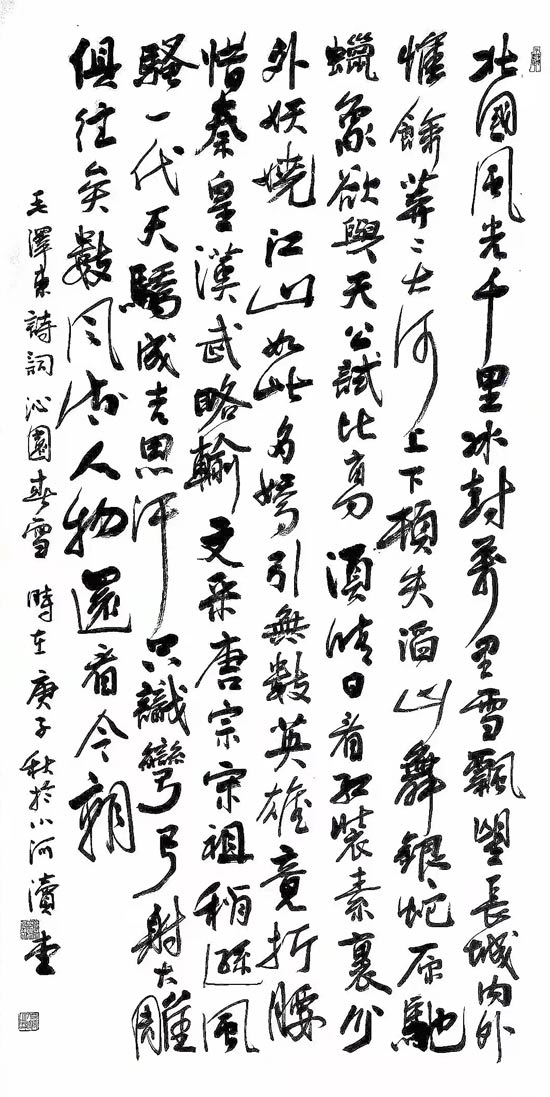 北國風光千里冰封萬里雪飄望長城內外
惟餘莽〻大河上下頓失滔山舞銀蛇原馳
蠟象欲與天公試比高須晴日看紅裝素裹分
外妖嬈江山如此多嬌引無數英雄竟折腰
惜秦皇漢武略輸文采唐宗宋祖稍遜風
騷一代天驕成吉思汗只識彎弓射大雕
俱往矣數風流人物還看今朝
毛澤東詩詞沁園春雪 時在庚子秋於小河瀆堂